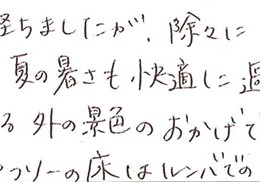 経ちましたが、除々に
夏の暑さも快適に過
る 外の景色のおかげで
ツリーの床はルンバでの